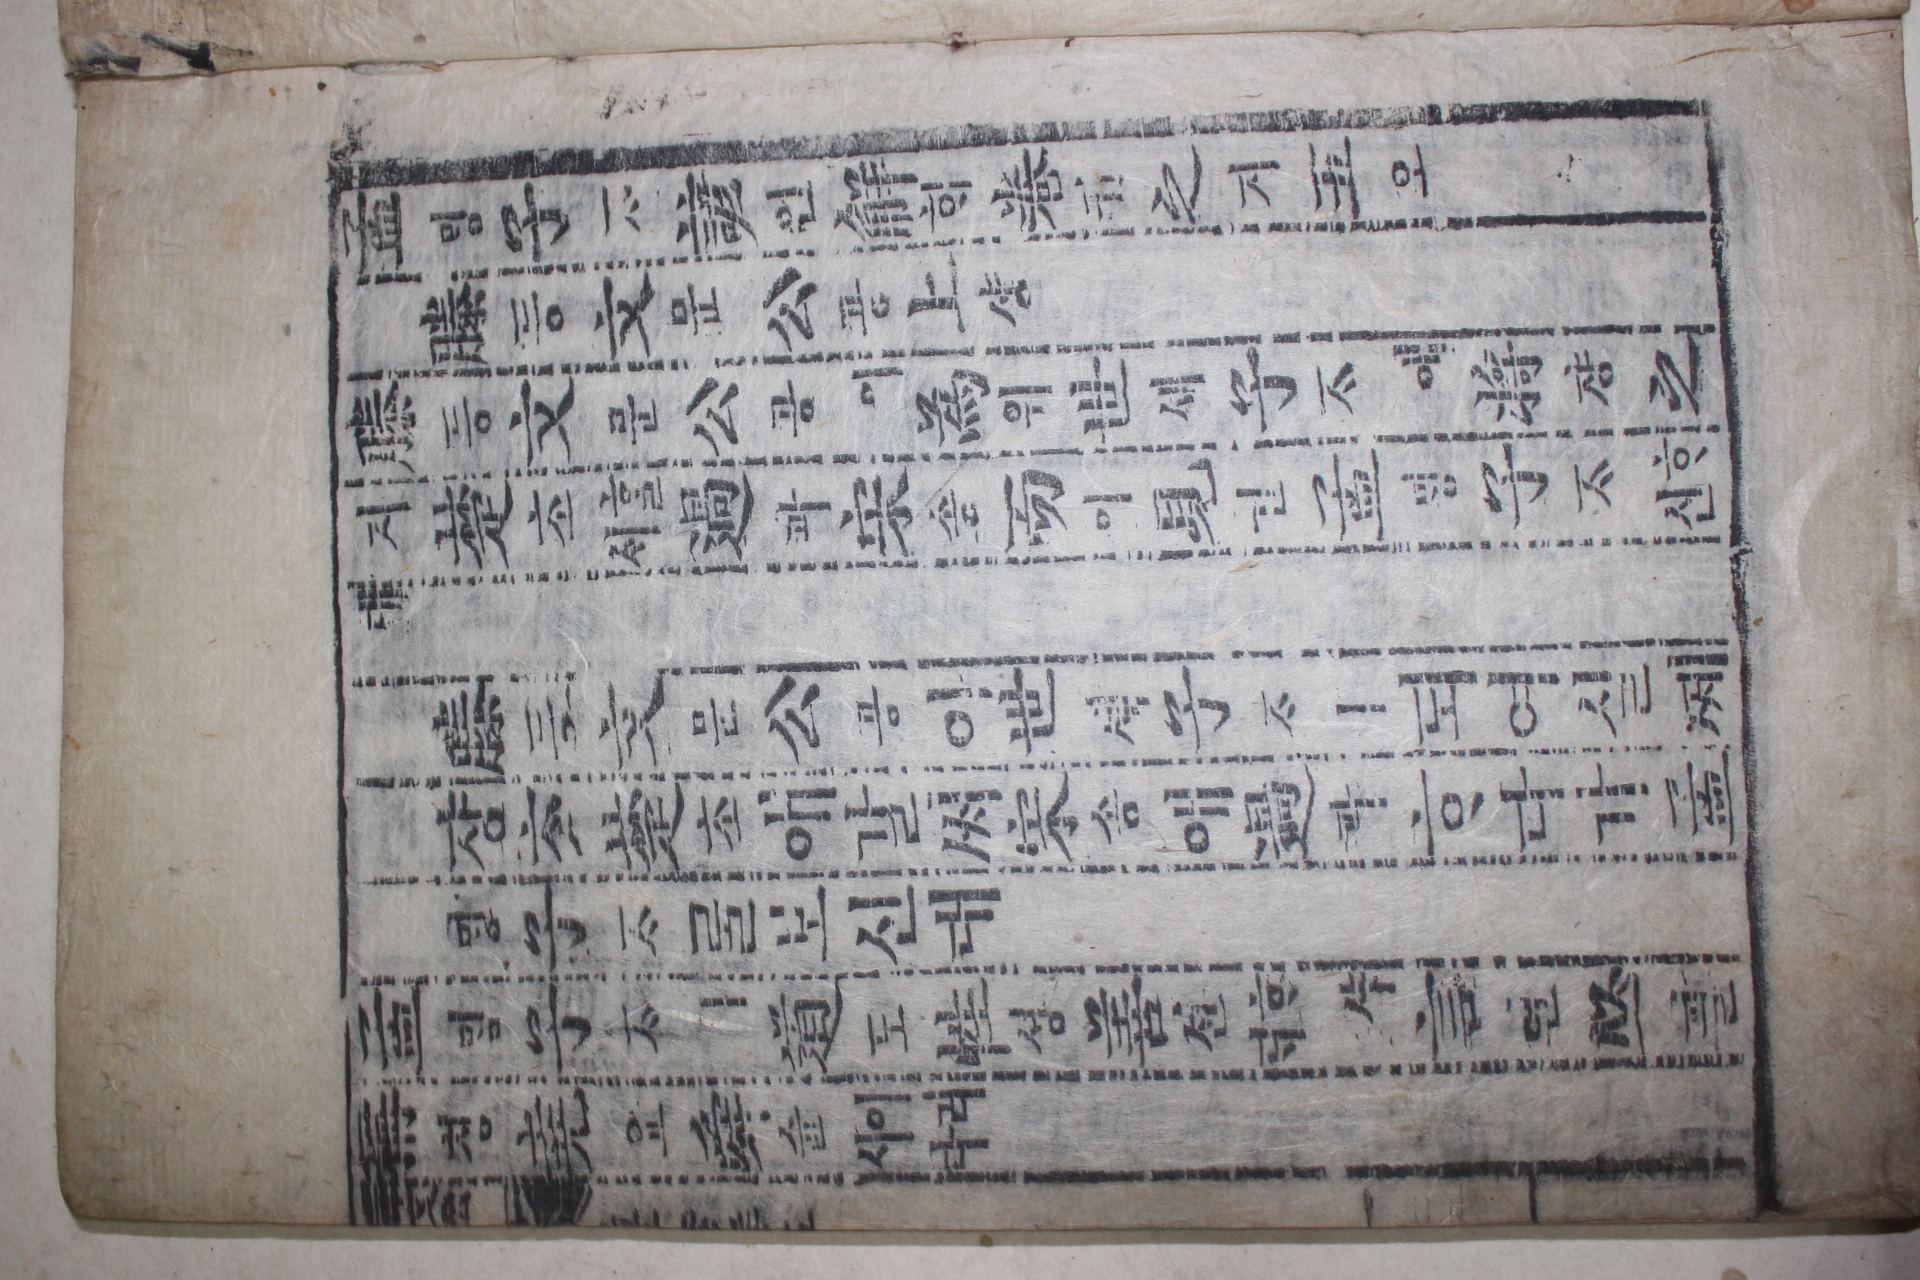 孟ᄆᆡᆼ子ᄌᆞ諺언解ᄒᆡ卷권之지五오
滕등文문公공上샹
滕등文문公공이爲위世셰子ᄌᆞ將쟝之
지楚초ᄒᆞᆯ셰過과宋송而이見견孟ᄆᆡᆼ子ᄌᆞᄒᆞ신
대
滕등文문公공이世셰子ᄌᆞㅣ도여실
쟝ᄎᆞᆺ楚초애갈宋송애過과ᄒᆞ다가孟
ᄆᆡᆼ子ᄌᆞᄅᆞᆯ보신대
孟ᄆᆡᆼ子ᄌᆞㅣ道도性셩善션ᄒᆞ샤ᄃᆡ言언必필
稱칭堯요舜슌이러시다